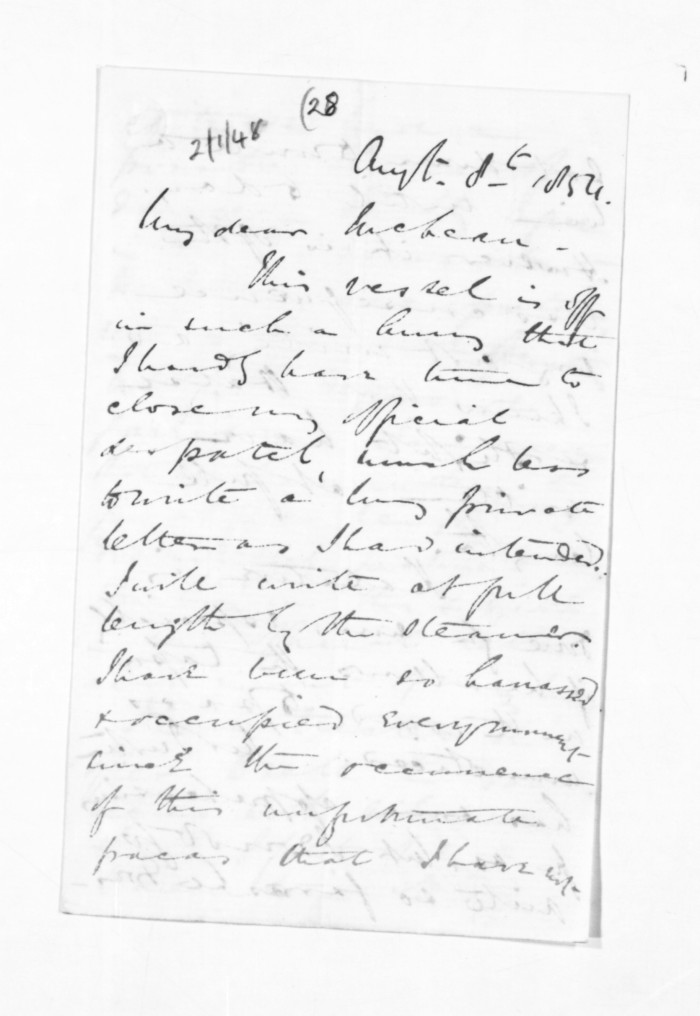 (28
2/1/48
Augt. 8th 1854.
My dear McLean -
This vessel is off
in such a hurry that
I hardly have time to
close my official
despatch, much less
to write a long private
letter as I had intended.
I will write at full
length by the Steamer.
I have been so harassed
& occupied every moment
since the occurrence
of this unfortunate
fracas that I have not